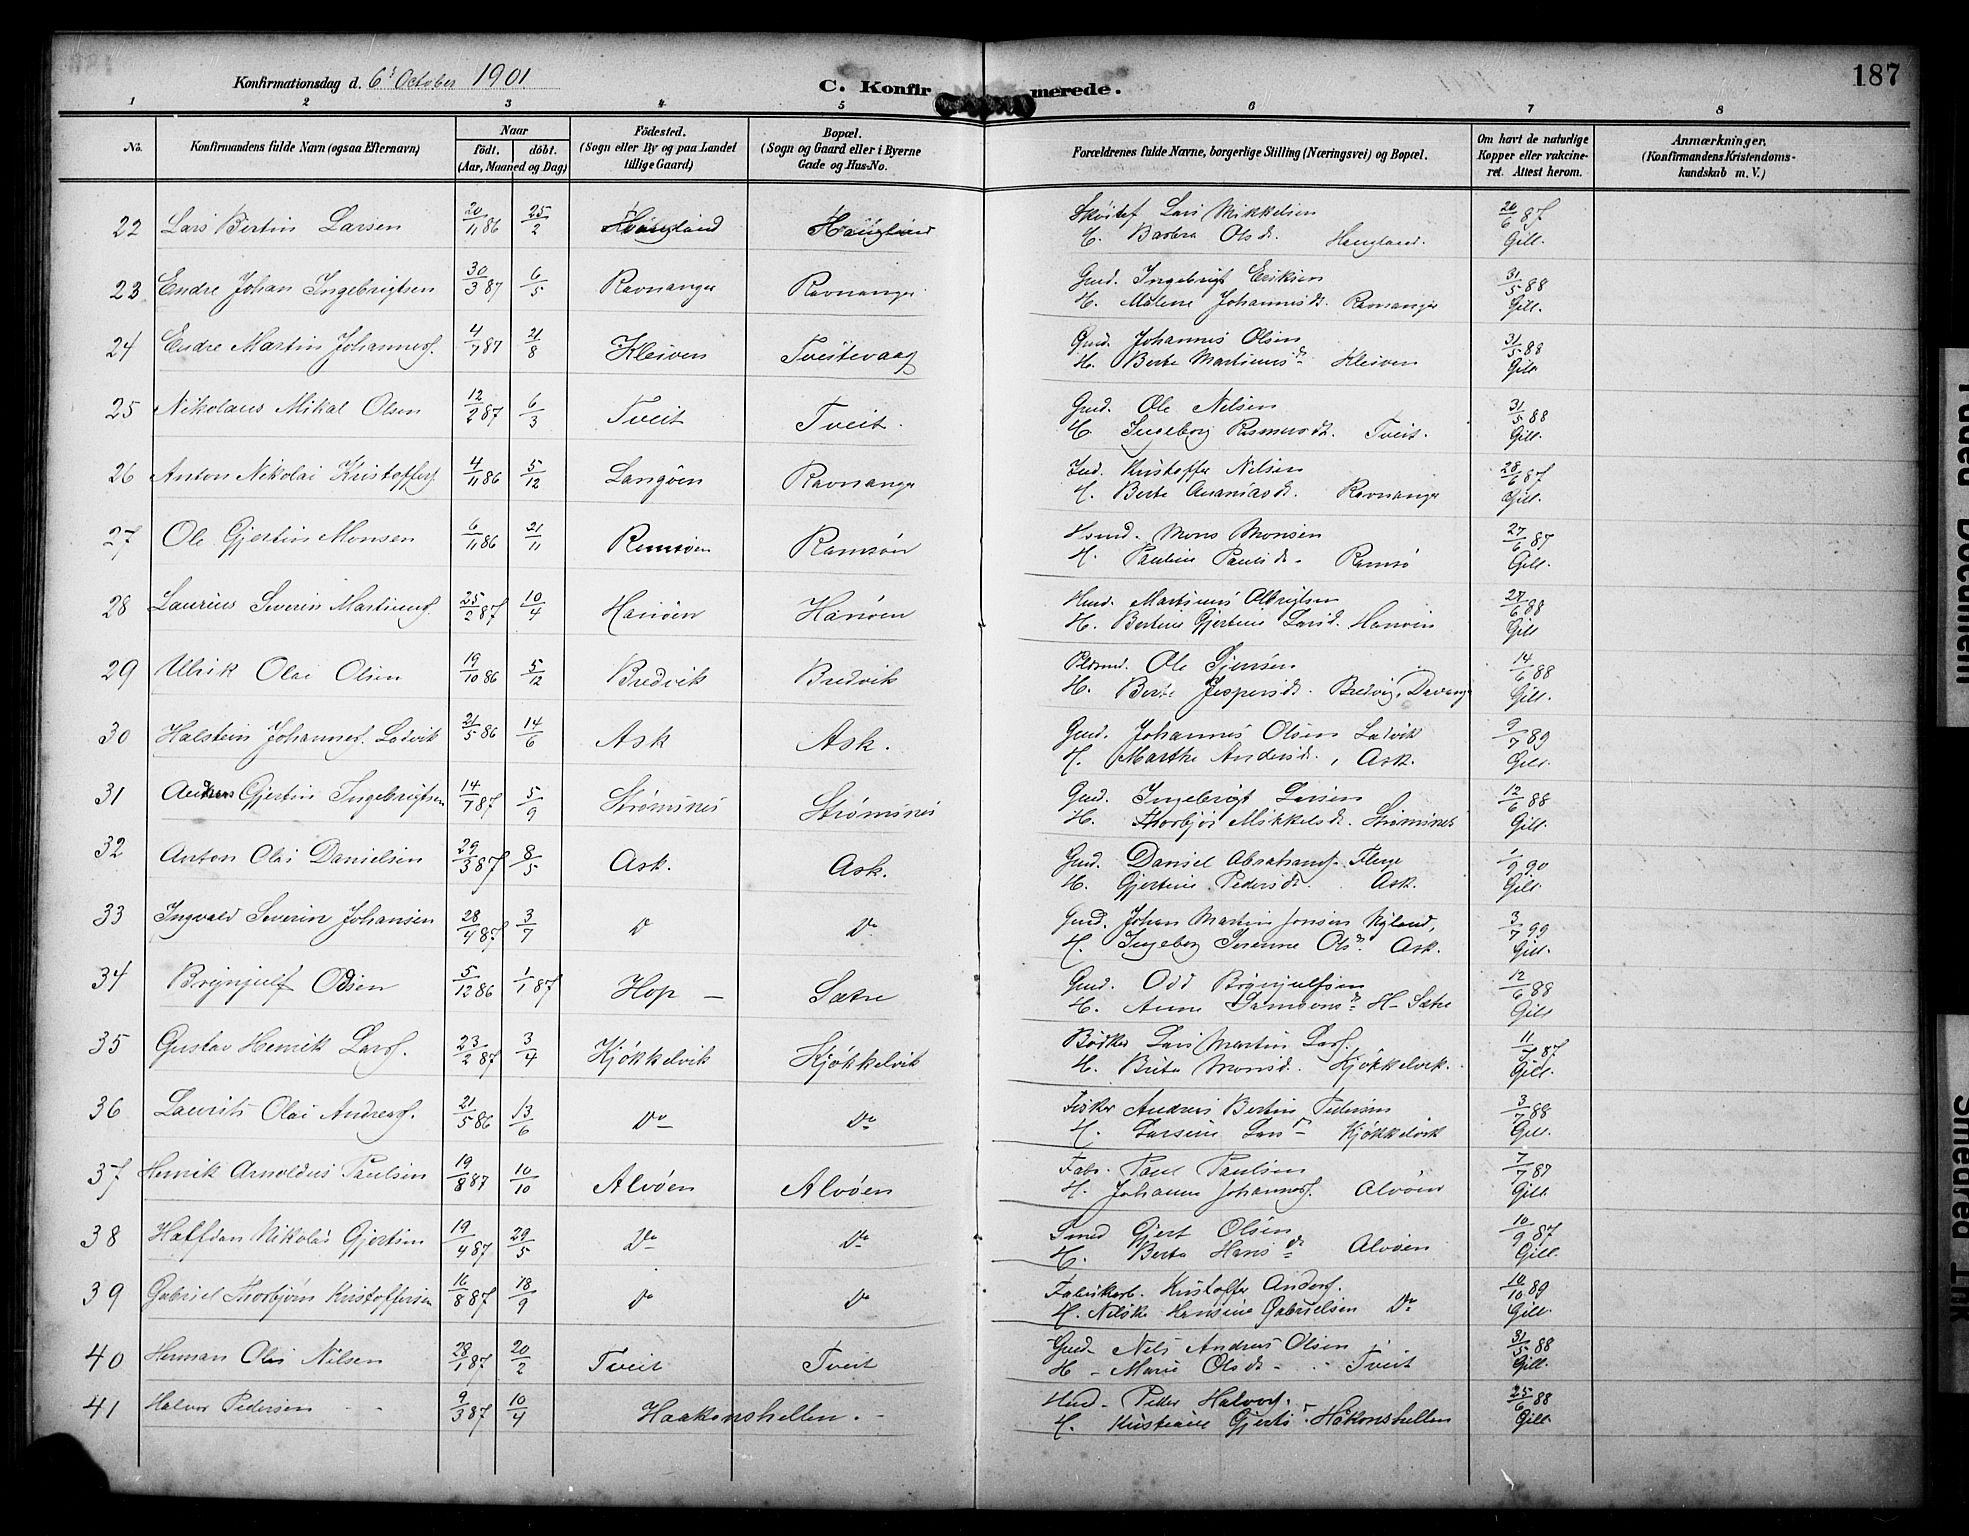 Konfirmationsdag d. 6' October 1901
C. Konfirmerede.
187
1 2 3 4 5 6 7 8
No.
Konfirmandens fulde Navn (ogsaa Efternavn)
Naar
födt. döbt.
(Aar, Maaned og Dag)
Födested.
(Sogn eller By og paa Landet
tillige Gaard)
Bopæl.
(Sogn og Gaard eller i Byerne
Gade og Hus-No.
Forældrenes fulde Navne, borgerlige Stilling (Næringsvei) og Bopæl.
Om havt de naturlige
Kopper eller vakcine-
ret. Attest herom.
Anmærkninger,
(Konfirmandens Kristendoms-
kundskab m. V.)
22 Lars Bertin Larsen 20/11 86 25/2 Haugland Haugland Lars Mikkelsen 20/6 87
H. Barbra Olsd. Haugland. Gill.
23 Endre Johan Ingebrigtsen 30/3 87 6/5 Ravnanger Ravnanger Gmd. Ingebrigt Eriksen 31/5 88
H. Malene Johannesd. Ravnanger Gill.
24 Endre Martin Johannes. 4/7 87 21/8 Kleiven Tveitevaag Gmd. Johannes Olsen 31/5 88
H. Berte Martinusd. Kleiven Gill
25 Nikolaus Mikal Olsen 12/2 87 6/3 Tveit Tveit. Gmd. Ole Nilsen 31/5 88
H. Ingeborg Rasmusd. Tveit. Gill.
26 Anton Nikolai Kristoffers. 4/11 86 5/12 Langøen Ravnanger Kristoffer Nilsen 28/6 87
H. Berte Ananiasd. Ravnanger Gill.
27 Ole Gjertin Monsen 6/11 86 21/11 Ramsøen Ramsøen Mons Monsen 27/6 87
H. Pauline Paulsd. Ramsø Gill.
28 Laurius Severin Martinus. 25/2 87 10/4 Hanøen Hanøen Hmd. Martinus Olbrigtsen 27/6 88
H. Bertine Gjertine Larsd. Hanøen Gill
29 Ulrik Olai Olsen 19/10 86 5/12 Bredvik Bredvik Pldsmd. Ole Jensen 14/6 88
H. Berte Jespersd. Bredvig, Gill.
30 Halstein Johannes. Ladvik 21/5 86 14/6 Ask Ask. Gmd. Johannes Olsen Ladvik 9/7 89
H. Marthe Andersd., Ask. Gill.
31 Anders Gjertin Ingebrigtsen 14/7 87 5/9 Strømsnes Strømsnes Gmd. Ingebrigt Larsen 12/6 88
H. Thorbjør Mikkelsd. Strømsnes Gill.
32 Anton Olai Danielsen 29/3 87 8/5 Ask. Ask. Gmd. Daniel Abrahams. Flage 1/9 90
H. Gjertine Pedersd. Ask. Gill.
33 Ingvald Severin Johansen 28/4 87 3/7 Do Do Gmd. Johan Martin Jonsen Nyland, 3/7 99
H. Ingeborg Serenne Olsd. Ask. Gill.
34 Brynjulf Odsen 5/12 86 1/1 87 Hop – Sætre Gmd. Odd Brynjulfsen 12/6 88
H. Anne Samsonsd. H– Sætre Gill
35 Gustav Henrik Lars. 23/2 87 3/4 Kjøkkelvik Kjøkkelvik Bødker Lars Martin Lars. 11/7 87
H. Brita Monsd. Kjøkkelvik. Gill.
36 Laurits Olai Andreas. 21/5 86 13/6 Do Do Fisker Andreas Bertin Pedersen 3/7 88
H. Larsine Larsd Kjøkkelvik Gill.
37 Henrik Arnoldus Paulsen 19/8 87 10/10 Alvøen Alvøen Fabr. Paul Paulsen 7/7 87
H. Johanne Johannes. Alvøen Gill.
38 Halfdan Nikolai Gjertsen 19/4 87 29/5 Do Do Smed Gjert Olsen 10/9 87
H. Berta Hansd. Alvøen Gill.
39 Gabriel Thorbjørn Kristoffersen 16/8 87 18/9 Do Do Fabrikarb. Kristoffer Anders. 10/10 89
H. Hansine Gabrielsen Do Gill.
40 Herman Olai Nilsen 28/1 87 20/2 Tveit Tveit Gmd. Nils Andreas Olsen 31/5 88
H – Marie Olsd – Tveit Gill.
41 Halvor Pedersen 9/3 87 10/4 Haakonshellen. – Hmd – Peder Halvors. 25/6 88
H. Kristiane Gjertsd. Håkonshellen Gill.